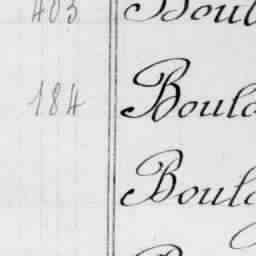 403 Boul
184 Boula
Boula